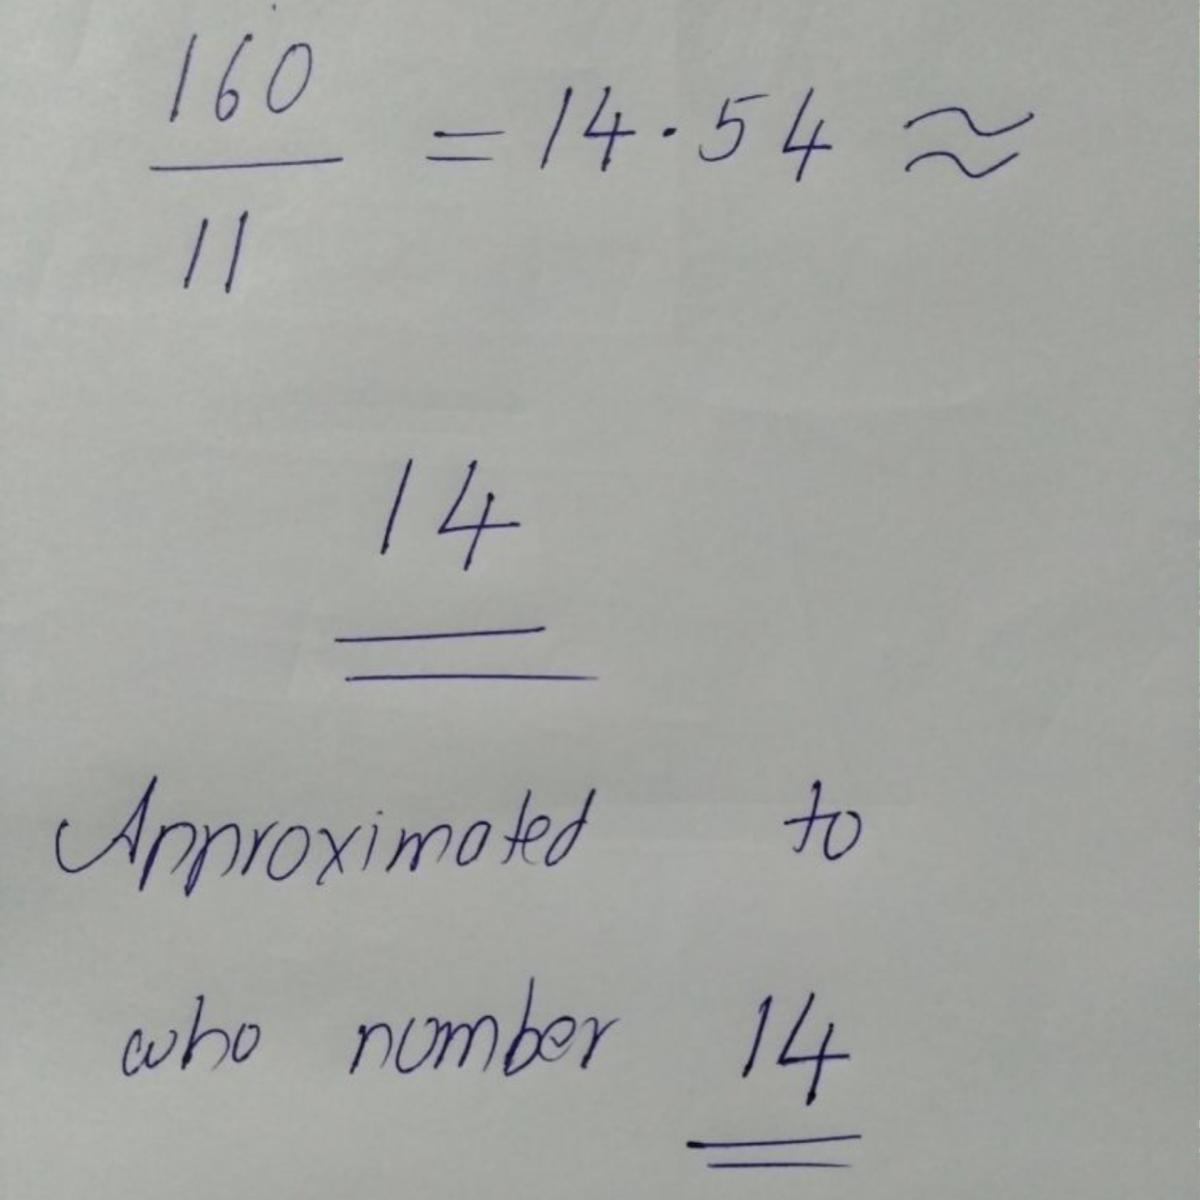 160
— = 14.54 ≈
11
14
Approximated to
who number 14